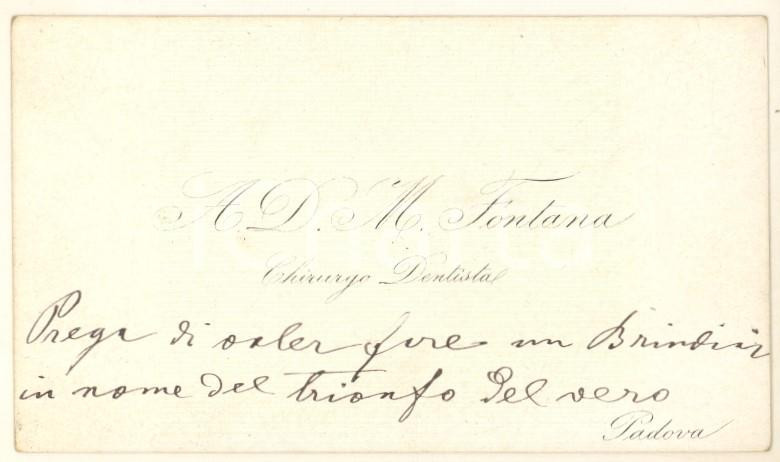 A. D. M. Fontana
Chirurgo Dentista
Prega di voler fare un Brindisi
in nome del trionfo del vero
Padova